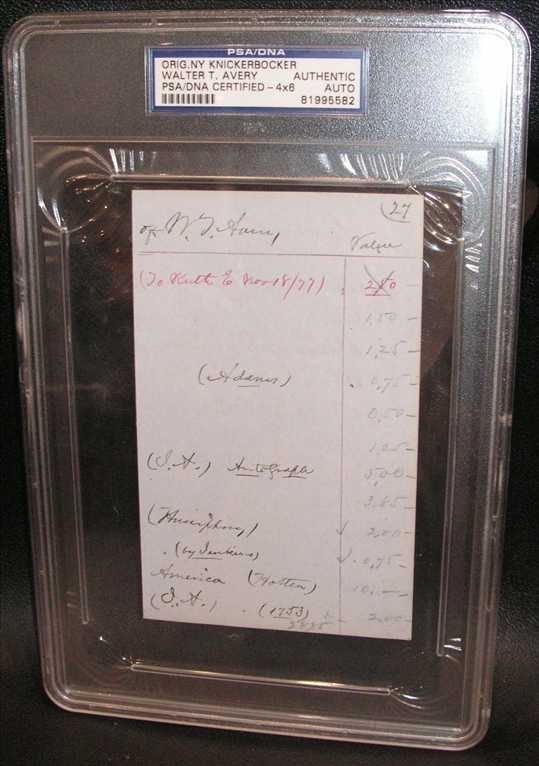 PSA/DNA
ORIG.NY KNICKERBOCKER
WALTER T. AVERY AUTHENTIC
PSA/DNA CERTIFIED - 4x6 AUTO
81995582
27
of W. T. Avery Value
(To Ruth E Nov 18/77) 2.50
1,50 -
1,25 -
(Adams) 0,75 -
0,50 -
1,25 -
(J.A.) Autograph 5,00 -
3,85 -
(Humphrey) √ 2,00 -
(by Jenkins) √ 0,75 -
America 10,
(J.A.) (1753) 2,00 -